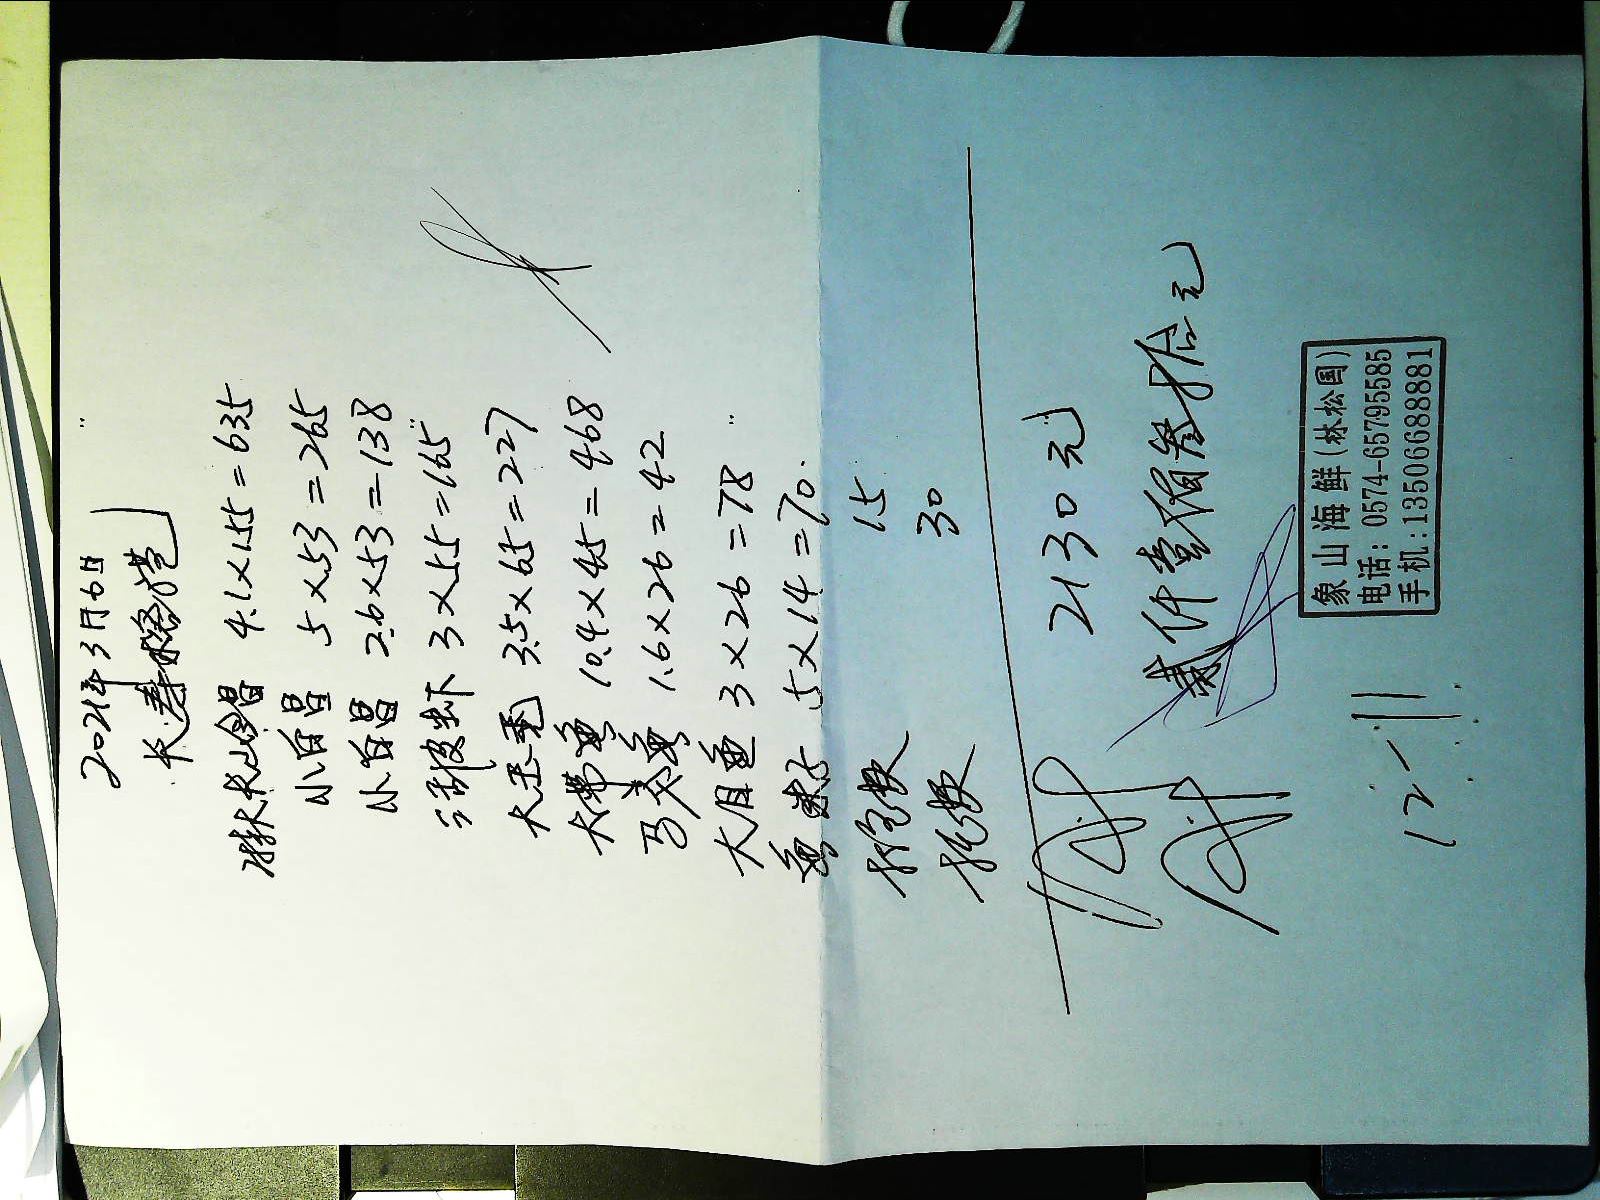 2021年3月6日
长寿
4.1×155=635
小白鲳 5×53=265
小白鲳 2.6×53=138
皮虾 3×55=165
大玉秃 3.5×65=227
大带鱼 10.4×45=468
马交鱼 1.6×26=42
大目鱼 3×26=78
5×14=70
打包费 15
托费 30
2130元
贰仟壹佰叁拾元
象山海鲜(林松国)
电话:0574-65795585
手机:13506688881
12-11